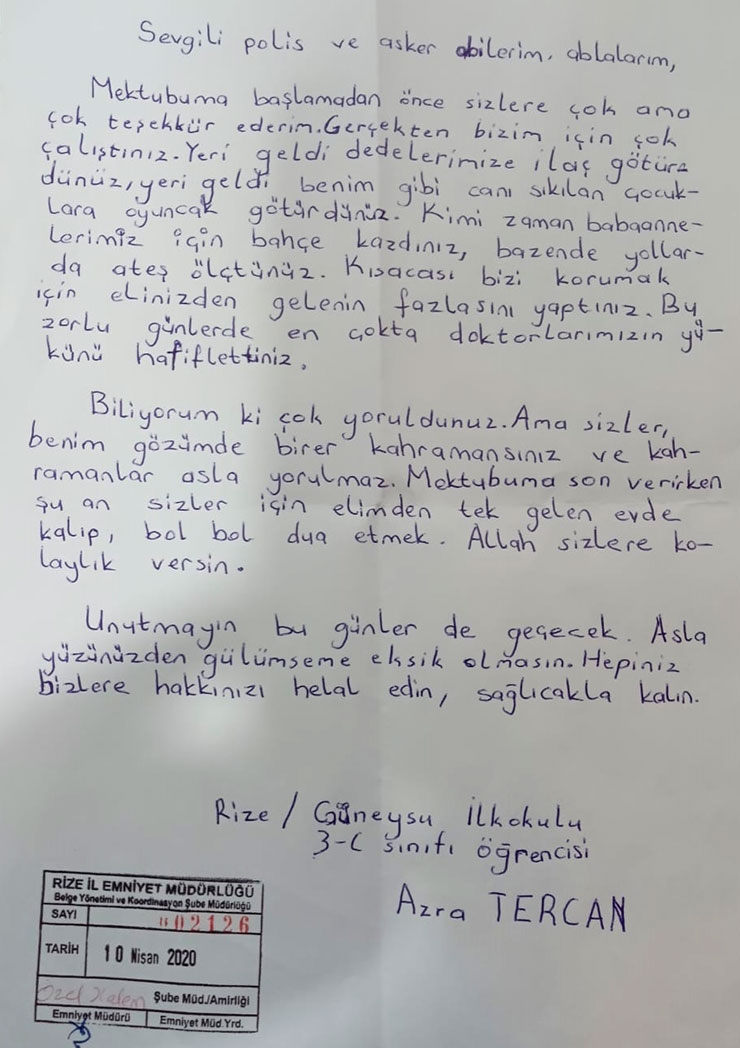 Sevgili polis ve asker abilerim, ablalarım,
Mektubuma başlamadan önce sizlere çok ama
çok teşekkür ederim. Gerçekten bizim için çok
çalıştınız. Yeri geldi dedelerimize ilaç götür-
dünüz, yeri geldi benim gibi canı sıkılan çocuk-
lara oyuncak götürdünüz. Kimi zaman babaanne-
lerimiz için bahçe kazdınız, bazende yollar-
da ateş ölçtünüz. Kısacası bizi korumak
için elinizden gelenin fazlasını yaptınız. Bu
zorlu günlerde en çokta doktorlarımızın yü-
künü hafiflettiniz.
Biliyorum ki çok yoruldunuz. Ama sizler,
benim gözümde birer kahramansınız ve kah-
ramanlar asla yorulmaz. Mektubuma son verirken
şu an sizler için elimden tek gelen evde
kalıp, bol bol dua etmek. Allah sizlere ko-
laylık versin.
Unutmayın bu günler de geçecek. Asla
yüzünüzden gülümseme eksik olmasın. Hepiniz
bizlere hakkınızı helal edin, sağlıcakla kalın.
Rize / Güneysu İlkokulu
3-C sınıfı öğrencisi
Azra TERCAN
RİZE İL EMNİYET MÜDÜRLÜĞÜ
Belge Yönetimi ve Koordinasyon Şube Müdürlüğü
SAYI 02126
TARİH 10 Nisan 2020
Özel Kalem Şube Müd./Amirliği
Emniyet Müdürü Emniyet Müd.Yrd.